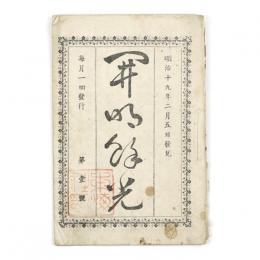 明治十九年二月五日發兌
開明餘光
毎月一回發行
第壹號